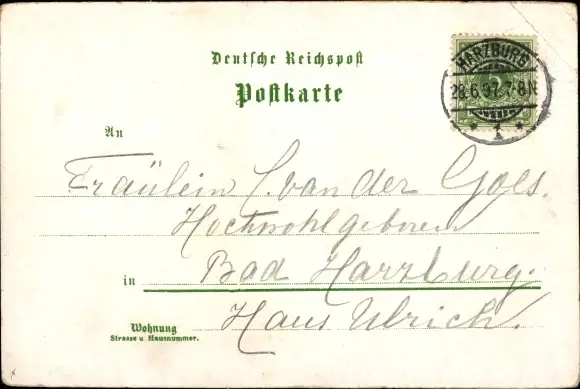 Deutsche Reichspost
Postkarte
HARZBURG
28.6.97.7-8N
* 1 *
An
Fräulein C. van der Goes.
Hochwohlgeboren
in Bad Harzburg.
Wohnung
Strasse u Hausnummer.
Haus Ulrich.